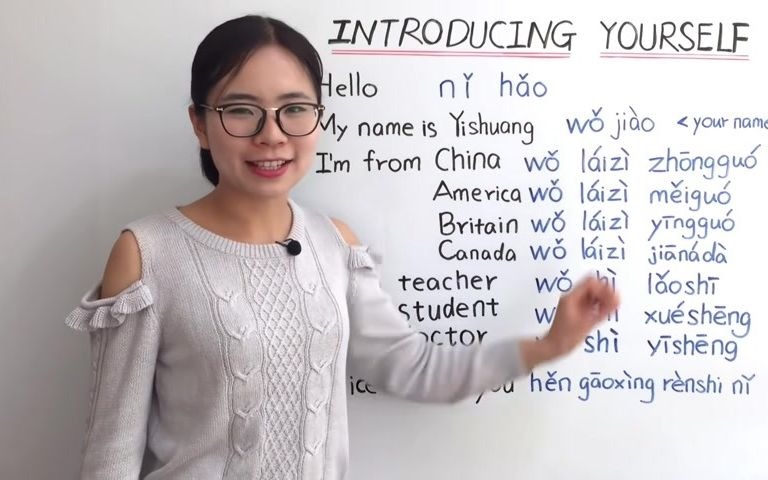 INTRODUCING YOURSELF
Hello nǐ hǎo
My name is Yishuang wǒ jiào < your name
I'm from China wǒ láizì zhōngguó
America wǒ láizì měiguó
Britain wǒ láizì yīngguó
Canada wǒ láizì jiānádà
teacher wǒ lǎoshī
student xuéshēng
shì yīshēng
you hěn gāoxìng rènshi nǐ